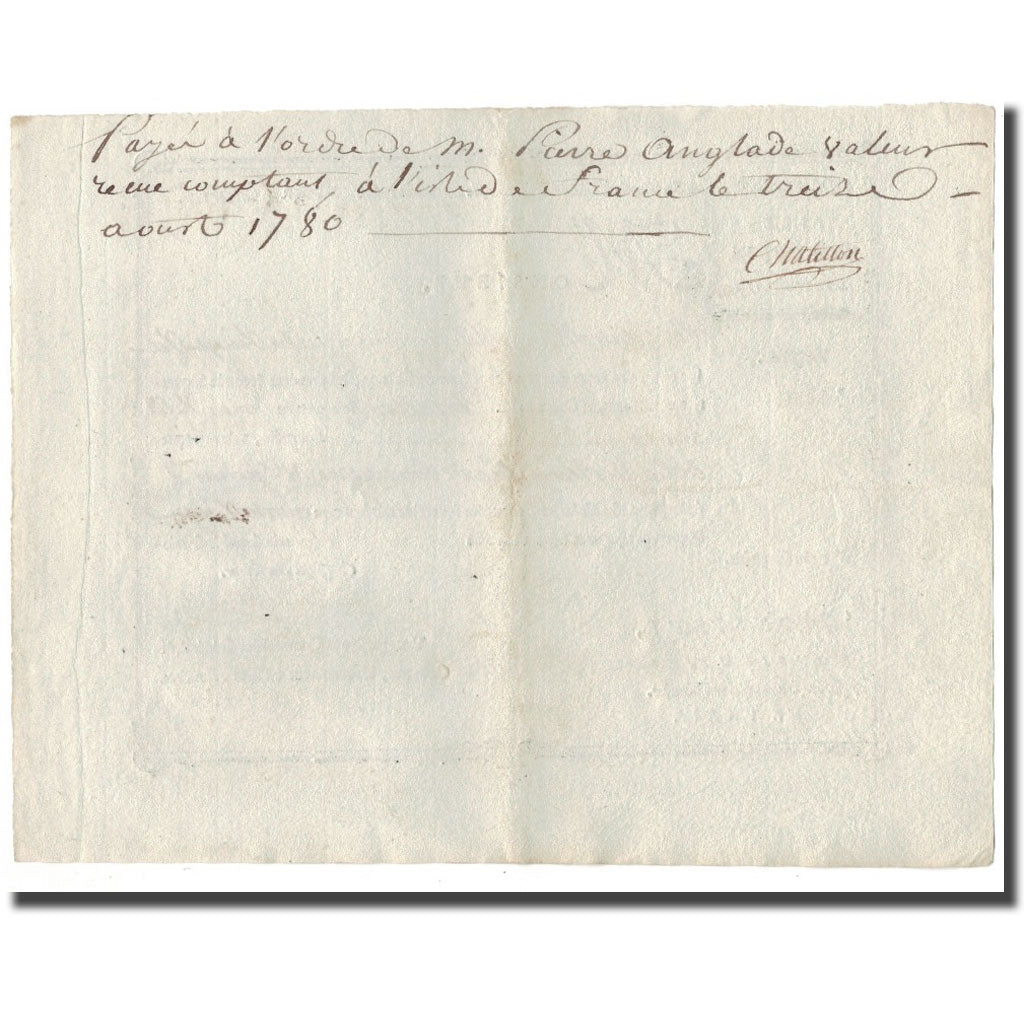 Payéz à l'ordre de M. Pierre Anglade valeur
recue comptant, à l'isle de France le treize
aoust 1780
Chatillon